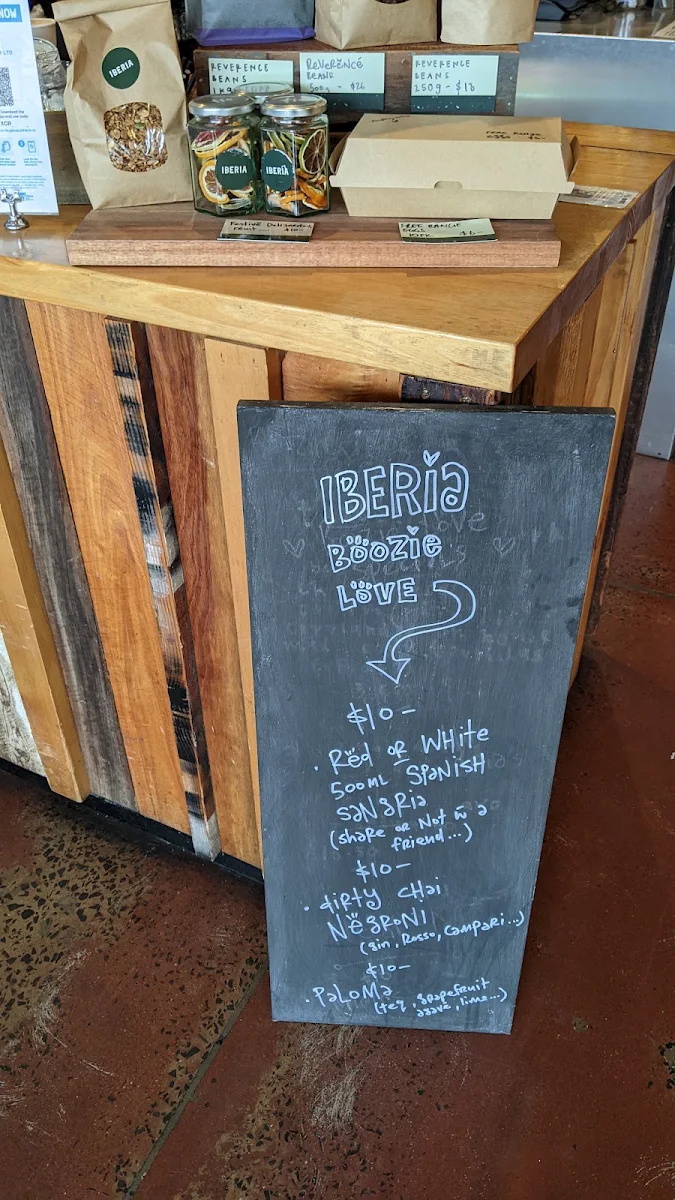 NOW
IBERIA
REVERENCE
BEANS
1KG
REVERENCE
BEANS
500g - $26
REVERENCE
BEANS
250g - $18
IBERIA
IBERIA
FREE RANGE
FESTIVE DEHYDRATED
FRUIT $10-
FREE RANGE
EGGS
10PK $6-
IBERIA
BOOZIE
LOVE
$10-
· Red or White
500ML SPANISH
SANGRIA
(share or Not w a
friend...)
$10-
· dirty chai
NEGRONI
(gin, Rosso, Campari...)
$10-
· PALOMA
(teq, grapefruit
agave, lime...)